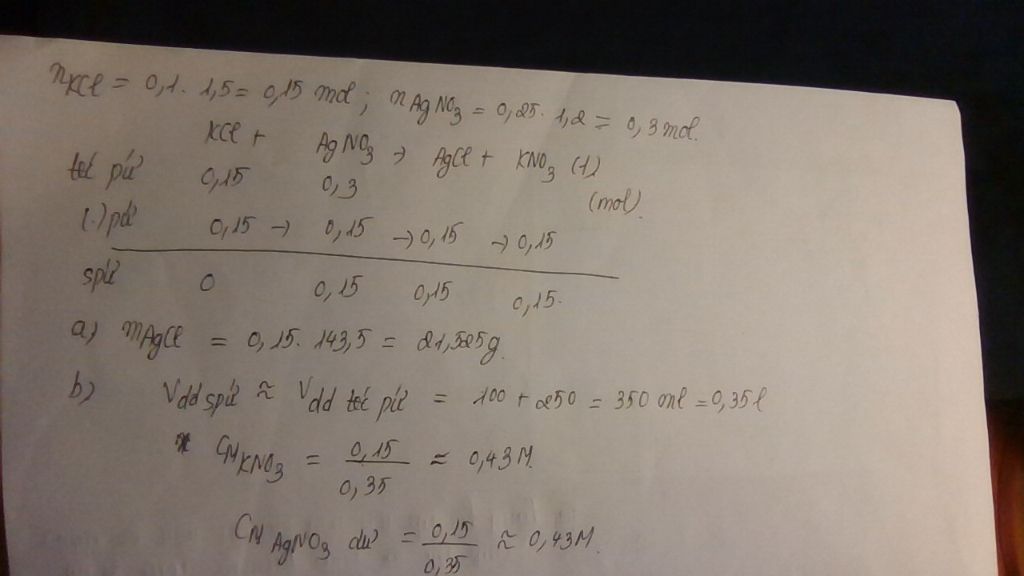 nKCl = 0,1. 1,5 = 0,15 mol ; nAgNO3 = 0,25. 1,2 = 0,3 mol.
KCl + AgNO3 → AgCl + KNO3 (1)
trc pứ 0,15 0,3 (mol).
(.) pứ 0,15 → 0,15 → 0,15 → 0,15
spứ 0 0,15 0,15 0,15.
a) mAgCl = 0,15. 143,5 = 21,525g.
b) Vdd spứ ≈ Vdd trc pứ = 100 + 250 = 350 ml = 0,35 l
CM KNO3 = 0,15 / 0,35 ≈ 0,43M.
CM AgNO3 dư = 0,15 / 0,35 ≈ 0,43M.